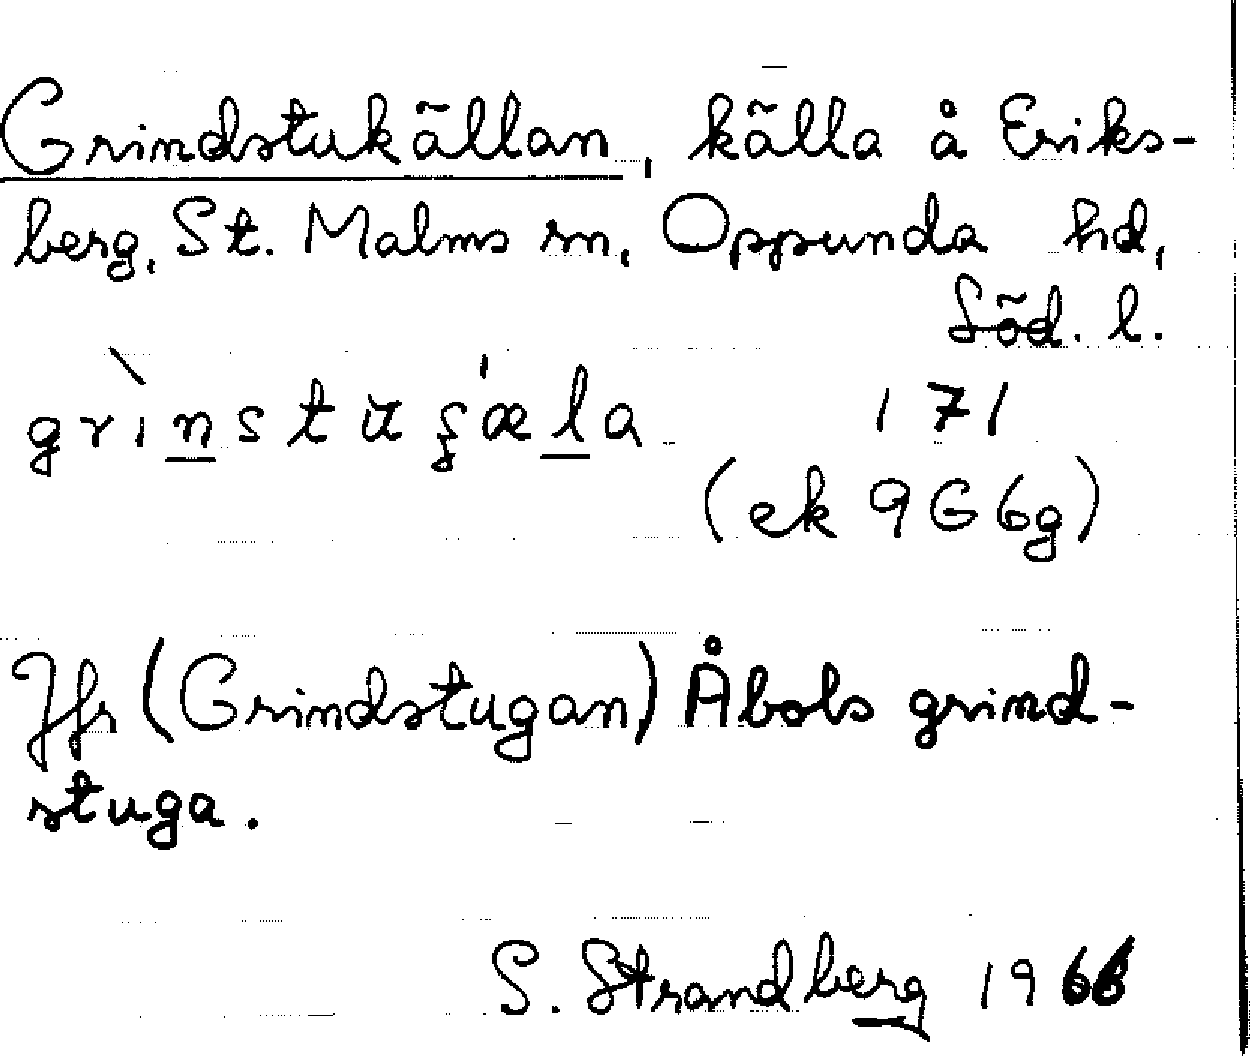 Grindstukällan, källa å Eriks-
berg, St. Malms sn, Oppunda hd,
Söd. l.
grìnstuʂ'æla 171
(ek 9G6g)
Jfr (Grindstugan) Åbols grind-
stuga.
S. Strandberg 1966